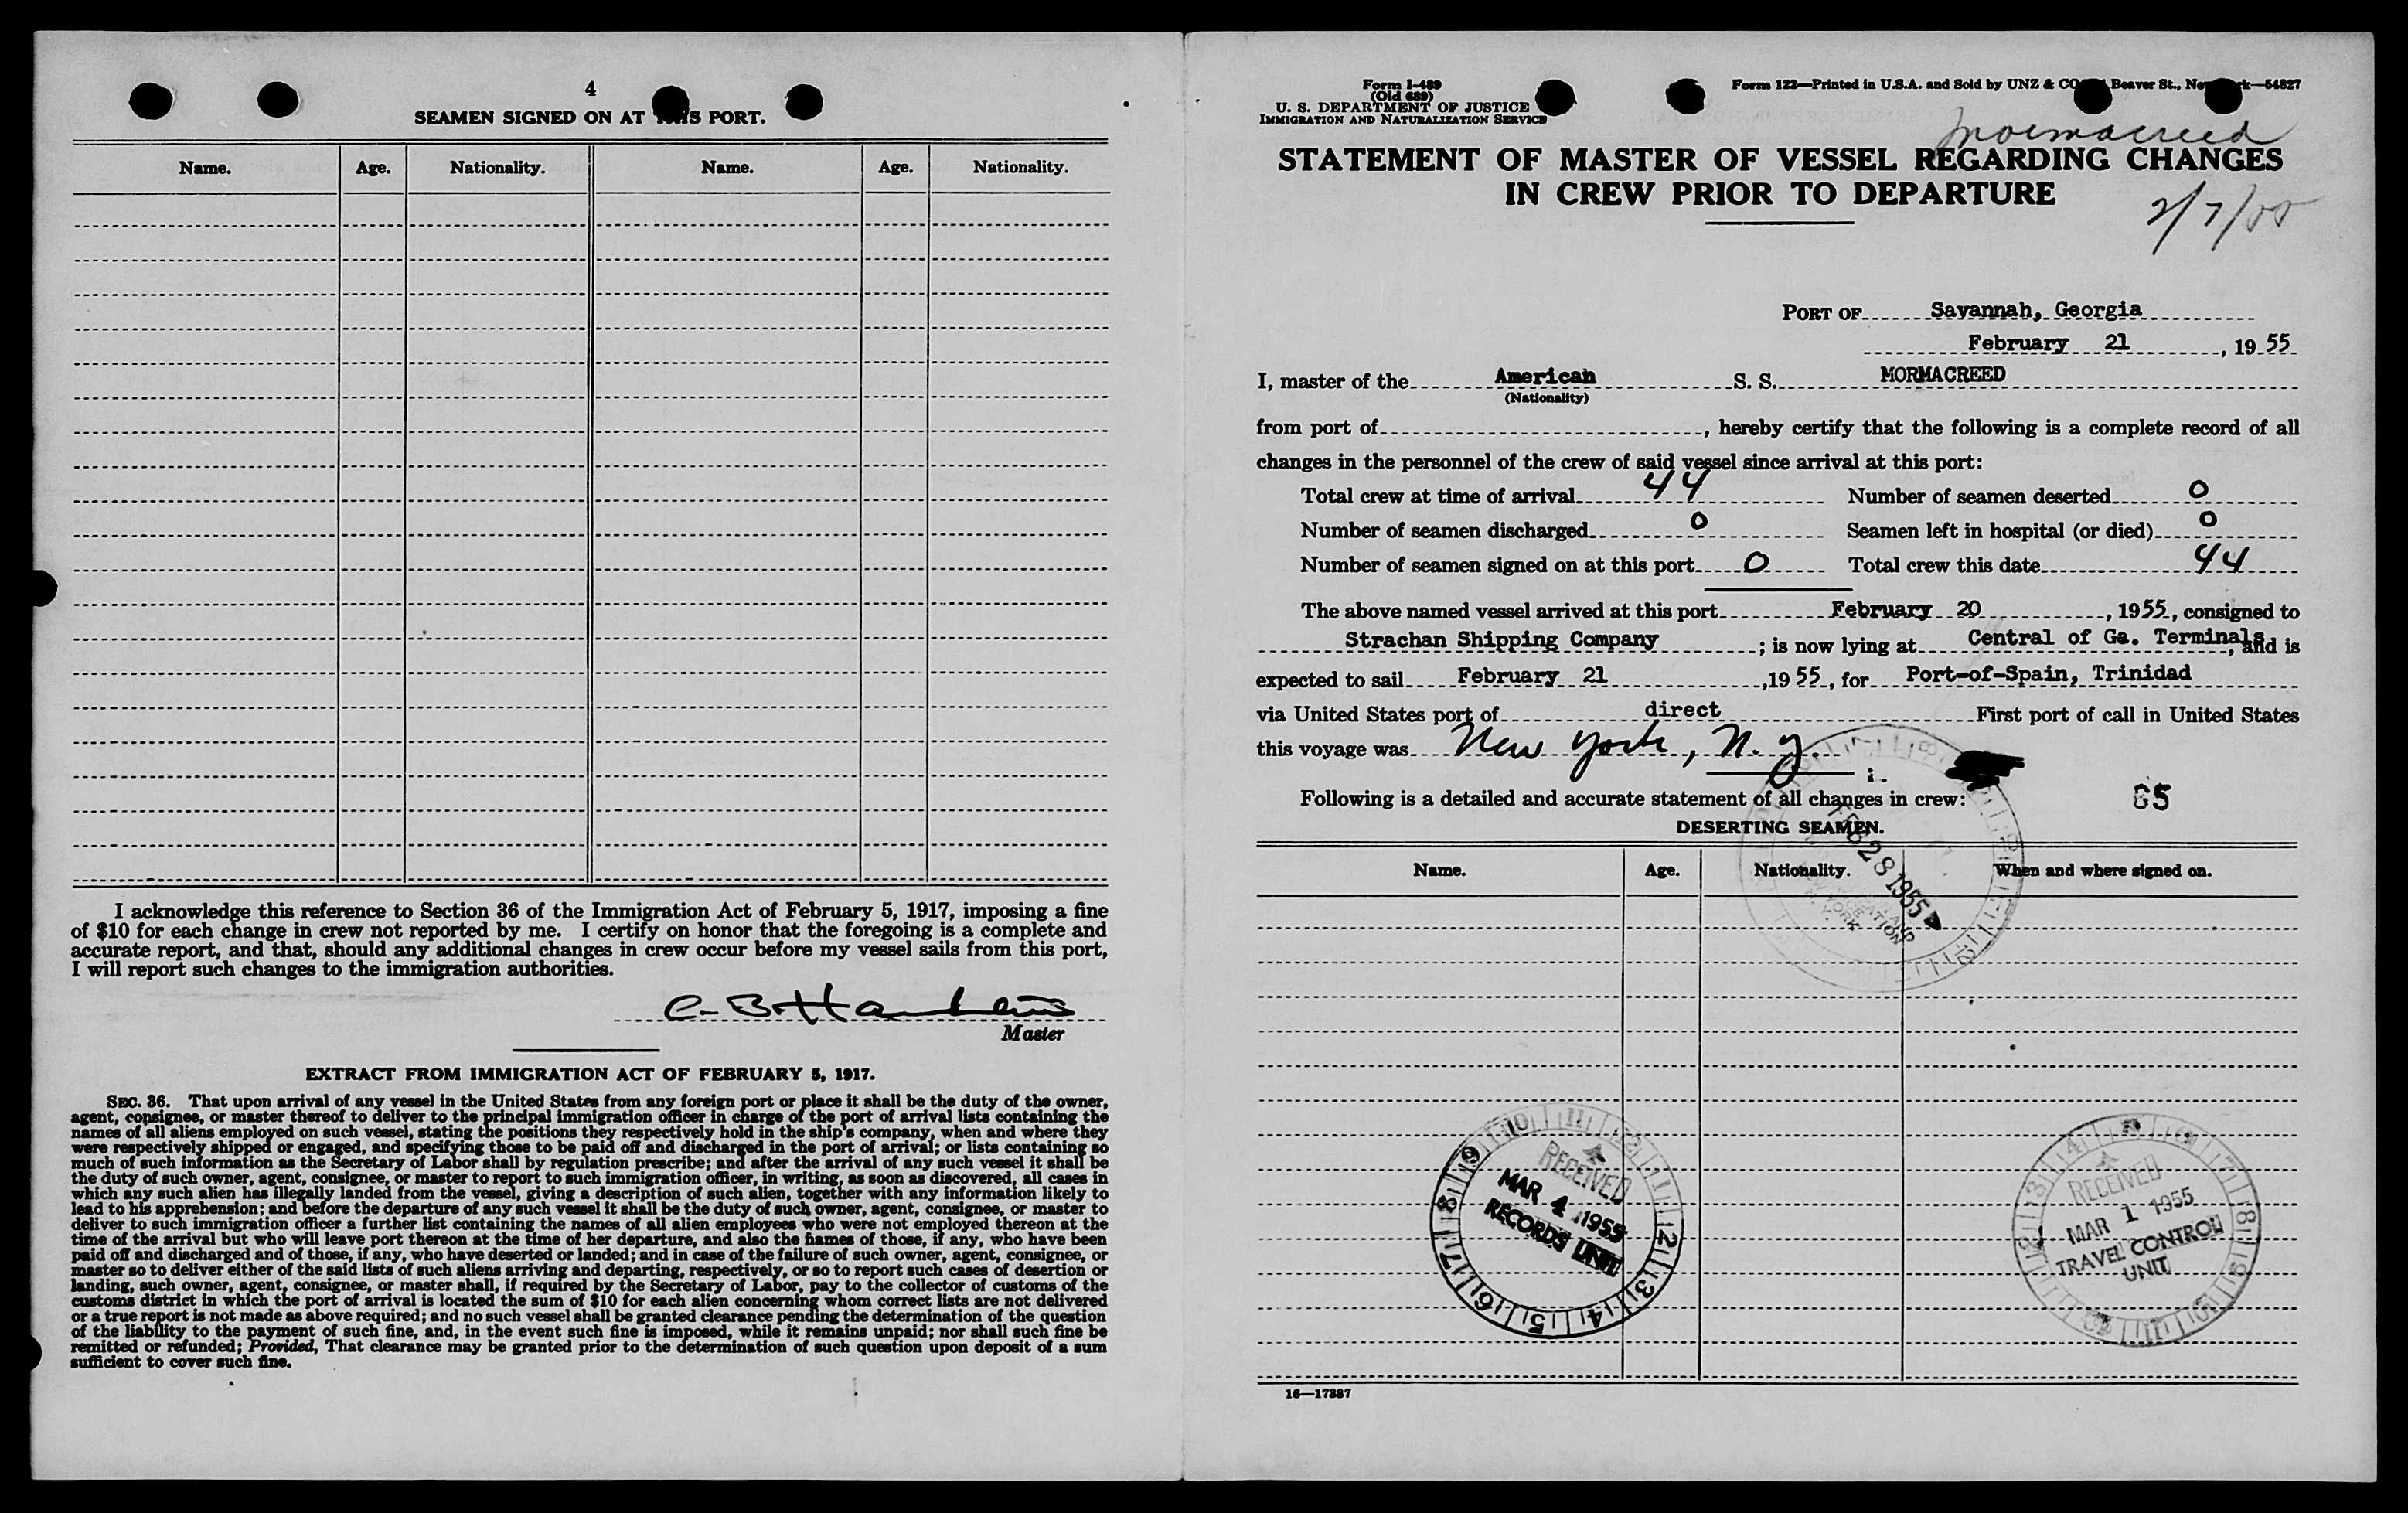 4
SEAMEN SIGNED ON AT THIS PORT.
Name. Age. Nationality. Name. Age. Nationality.
I acknowledge this reference to Section 36 of the Immigration Act of February 5, 1917, imposing a fine
of $10 for each change in crew not reported by me. I certify on honor that the foregoing is a complete and
accurate report, and that, should any additional changes in crew occur before my vessel sails from this port,
I will report such changes to the immigration authorities.
Master
EXTRACT FROM IMMIGRATION ACT OF FEBRUARY 5, 1917.
SEC. 36. That upon arrival of any vessel in the United States from any foreign port or place it shall be the duty of the owner,
agent, consignee, or master thereof to deliver to the principal immigration officer in charge of the port of arrival lists containing the
names of all aliens employed on such vessel, stating the positions they respectively hold in the ship's company, when and where they
were respectively shipped or engaged, and specifying those to be paid off and discharged in the port of arrival; or lists containing so
much of such information as the Secretary of Labor shall by regulation prescribe; and after the arrival of any such vessel it shall be
the duty of such owner, agent, consignee, or master to report to such immigration officer, in writing, as soon as discovered, all cases in
which any such alien has illegally landed from the vessel, giving a description of such alien, together with any information likely to
lead to his apprehension; and before the departure of any such vessel it shall be the duty of such owner, agent, consignee, or master to
deliver to such immigration officer a further list containing the names of all alien employees who were not employed thereon at the
time of the arrival but who will leave port thereon at the time of her departure, and also the names of those, if any, who have been
paid off and discharged and of those, if any, who have deserted or landed; and in case of the failure of such owner, agent, consignee, or
master so to deliver either of the said lists of such aliens arriving and departing, respectively, or so to report such cases of desertion or
landing, such owner, agent, consignee, or master shall, if required by the Secretary of Labor, pay to the collector of customs of the
customs district in which the port of arrival is located the sum of $10 for each alien concerning whom correct lists are not delivered
or a true report is not made as above required; and no such vessel shall be granted clearance pending the determination of the question
of the liability to the payment of such fine, and, in the event such fine is imposed, while it remains unpaid; nor shall such fine be
remitted or refunded; Provided, That clearance may be granted prior to the determination of such question upon deposit of a sum
sufficient to cover such fine.
Form I-489
(Old 689)
U. S. DEPARTMENT OF JUSTICE
IMMIGRATION AND NATURALIZATION SERVICE
Form 122—Printed in U.S.A. and Sold by UNZ & CO Beaver St., New York—54827
Mormacreed
STATEMENT OF MASTER OF VESSEL REGARDING CHANGES
IN CREW PRIOR TO DEPARTURE
2/7/55
PORT OF Savannah, Georgia
February 21, 1955
I, master of the American S. S. MORMACREED
(Nationality)
from port of , hereby certify that the following is a complete record of all
changes in the personnel of the crew of said vessel since arrival at this port:
Total crew at time of arrival 44 Number of seamen deserted 0
Number of seamen discharged 0 Seamen left in hospital (or died) 0
Number of seamen signed on at this port 0 Total crew this date 44
The above named vessel arrived at this port February 20, 1955, consigned to
Strachan Shipping Company; is now lying at Central of Ga. Terminals, and is
expected to sail February 21, 1955, for Port-of-Spain, Trinidad
via United States port of direct First port of call in United States
this voyage was New York, N.Y.
Following is a detailed and accurate statement of all changes in crew: 85
DESERTING SEAMEN.
FEB 28 1955
Name. Age. Nationality. When and where signed on.
RECEIVED
MAR 4 1955
RECORDS UNIT
RECEIVED
MAR 1 1955
TRAVEL CONTROL
UNIT
16—17887